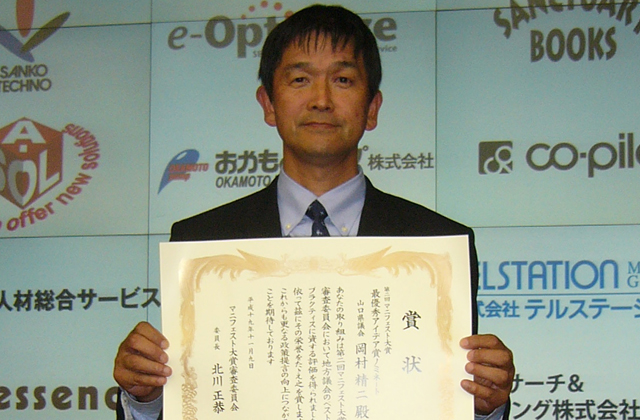 SANKO
TECHNO
e-Opt
SANCTUARY
BOOKS
A
SOL
offer new solutions
おかも
株式会社
OKAMOTO
co-pilo
人材総合サービス
ELSTATION
株式会社 テルステージ
essenc
サーチ&
ング株式会社
賞状
第二回マニフェスト大賞
最優秀アイデア賞
山口県議会 岡村精二殿
あなたの取り組みは第二回マニフェスト大
審査委員会において地方議会のベスト
プラクティスに資する評価を得られまし
依って茲にその栄誉をたたえ之を賞しま
これからも更なる政策提言の向上につなが
ことを期待しております
平成十九年十一月九日
マニフェスト大賞審査委員会
委員長 北川正恭